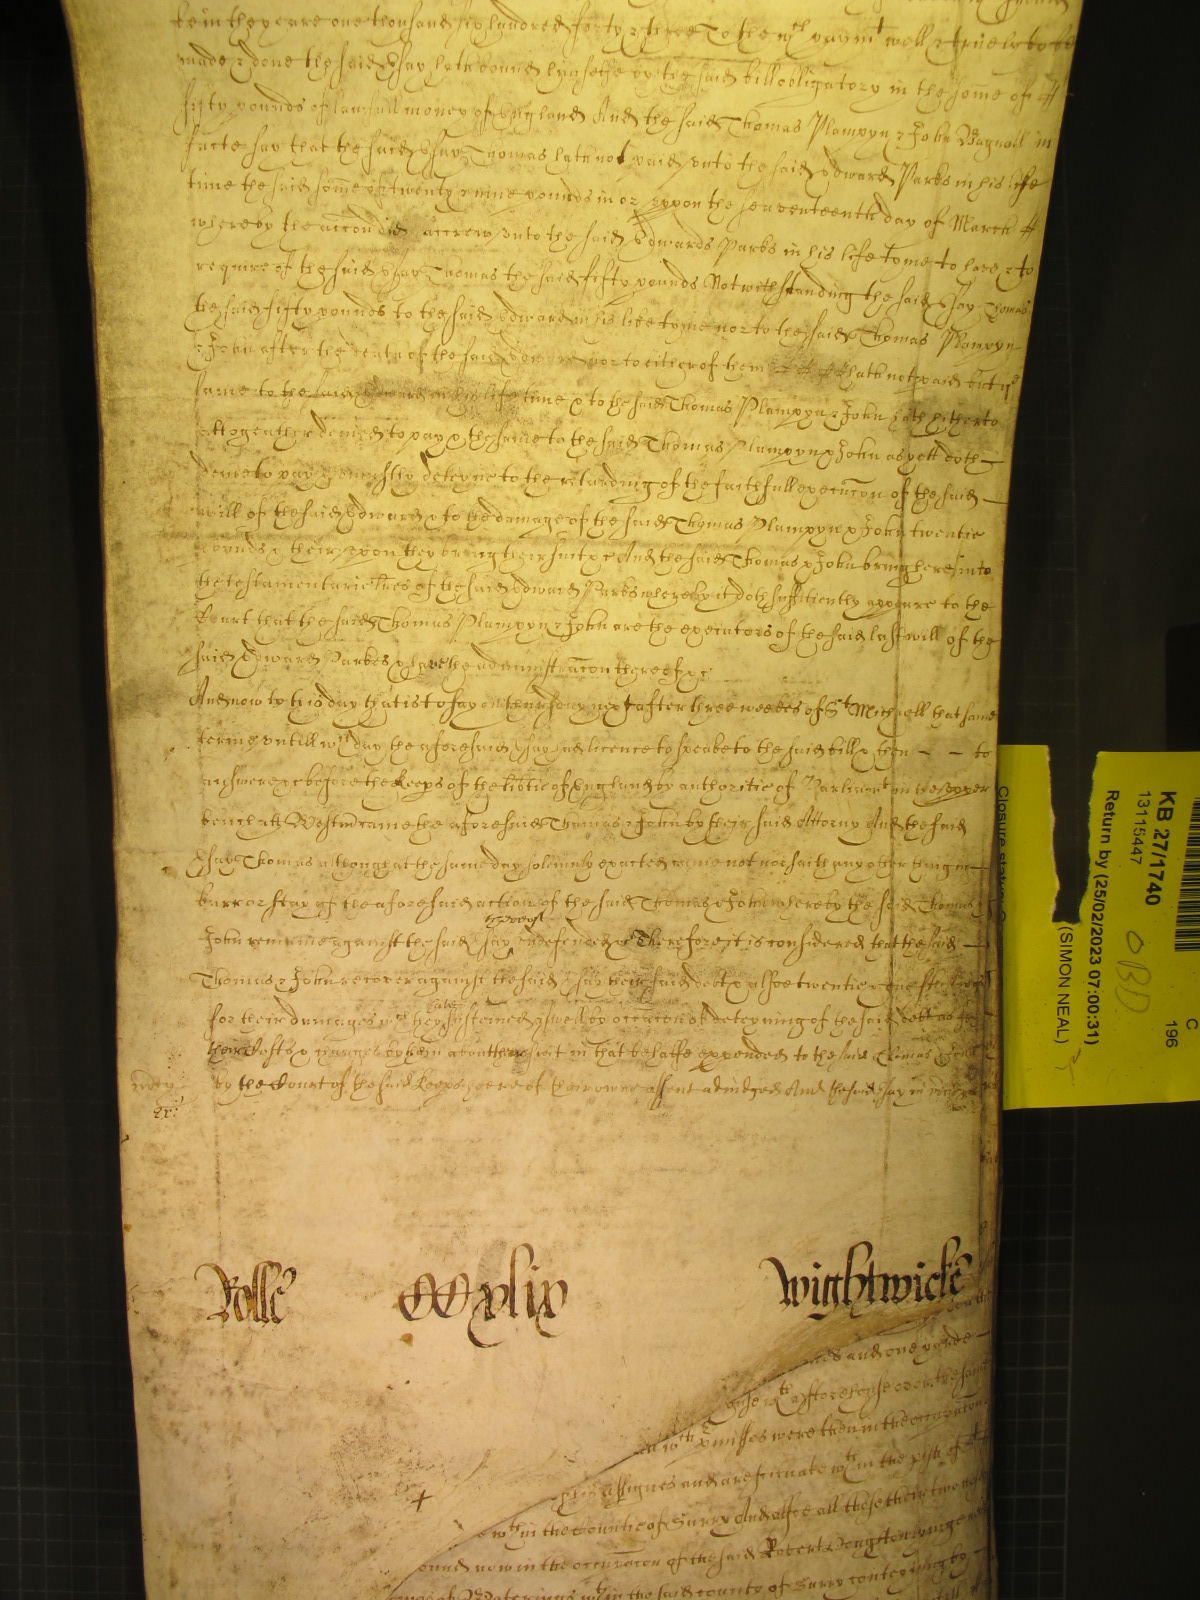 in the yeare one thousand six hundred forty & three To the wch paymt well & truely to be
made & done the said Esay hath bound himselfe by the said bill obligatory in the some of
fifty pounds of lawfull money of England And the said Thomas Plampyn & John Bagnall in
facte say that the said Esay Thomas hath not paid unto the said Edward Parks in his life
time the said some of twenty nine pounds in or uppon the seaventeenth day of March
whereby the accon did accrew unto the said Edward Parks in his life tyme to have & to
require of the said Esay Thomas the said fifty pounds Notwithstanding the said Esay Thomas
the said fifty pounds to the said Edward in his life tyme nor to the said Thomas Plampyn
& John after the death of the said Edward nor to either of them hath not paid but ye
same to the said Edward in his life time & to the said Thomas Plampyn & John hath hitherto
altogeather denied to pay & the same to the said Thomas Plampyn & John as yett doth
denie to pay & uniustly deteyne to the retarding of the faithfull execucon of the said
will of the said Edward & to the damage of the said Thomas Plampyn & John twentie
pounds & thereupon they bring their suit &c And the said Thomas & John bring here into
the testamentarie lres of the said Edward Parks whereby it doth sufficiently appeare to the
Court that the said Thomas Plampyn & John are the executors of the said last will of the
said Edward Parkes & have the administracon thereof &c
And now at this day that is to say on thursday next after three weekes of St Michaell that same
terme untill wch day the aforesaid Esay had licence to speake to the said bill & then to
answere &c before the Keeps of the libtie of England by authoritie of Parliamt in the upper
bench att Westm came the aforesaid Thomas & John by their said Attorny And the said
Esay Thomas although at the same day solemnly exacted came not nor saith any other thing in
barr or stay of the aforesaid action of the said Thomas & John whereby the said Thomas &
John remaine against the said Esay thereof undefended &c Therefore it is considered that the said
Thomas & John recover against the said Esay their said debt & alsoe twentie & one shillings
for their damages wch they have susteined aswell by occasion of deteyning of the said debt as for
their Costs & charges by them about their suit in that behalfe expended to the said Thomas & John
by the Court of the said Keeps here of their owne assent adiudged And the said Esay in mercy
mercy
Rolle CCxlix Wightwicke
and one yarde
wch aforehouse over the same
wch pmisses were then in the occupacon
assignes and are scituate wth in the pish of St
wth in the Countie of Surry And alsoe all those their two
now in the occupacon of the said Robert Houghton
wth in the said county of Surry conteyning by
KB 27/1740
13115447
Return by (25/02/2023 07:00:31)
(SIMON NEAL)
196
C